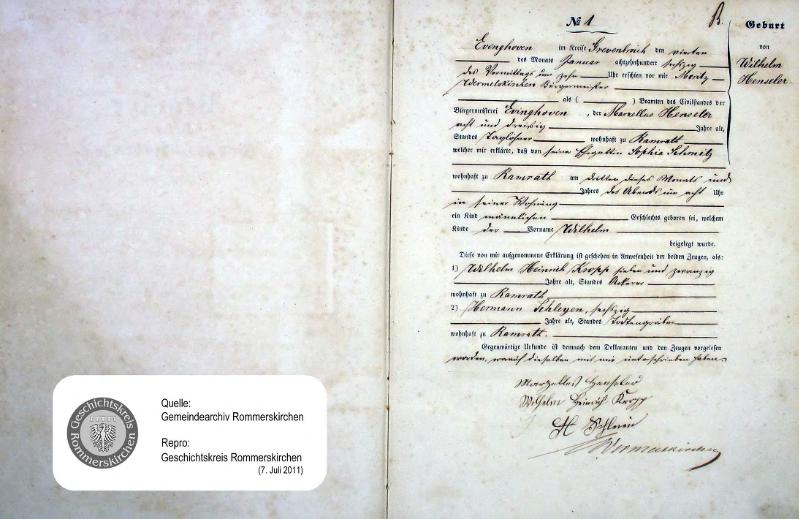 № 1
B.
Geburt
von
Wilhelm
Henseler
Evinghoven im Kreise Grevenbroich den vierten
des Monats Januar achtzehnhundert sechszig
des Vormittags um zehn Uhr erschien vor mir Moritz
Wermelskirchen Bürgermeister
als ( ) Beamten des Civilstandes der
Bürgermeisterei Evinghoven, der Marcellus Henseler
acht und dreißig Jahre alt,
Standes Taglöhner wohnhaft zu Ramrath
welcher mir erklärte, daß von seiner Ehegattin Sophia Schmitz
wohnhaft zu Ramrath am dritten dieses Monats und
Jahres des Abends um acht Uhr
in seiner Wohnung
ein Kind männlichen Geschlechts geboren sei, welchem
Kinde der Vorname Wilhelm
beigelegt wurde.
Diese von mir aufgenommene Erklärung ist geschehen in Anwesenheit der beiden Zeugen, als:
1) Wilhelm Heinrich Kropp sieben und zwanzig
Jahre alt, Standes Ackerer
wohnhaft zu Ramrath
2) Hermann Schleyen, sechszig
Jahre alt, Standes Todtengräber
wohnhaft zu Ramrath.
Gegenwärtige Urkunde ist demnach dem Deklaranten und den Zeugen vorgelesen
worden, wonach dieselben mit mir unterschrieben haben.
Wilhelm Heinrich Kropp
H
Wermelskirchen
Geschichtskreis
Rommerskirchen
Quelle:
Gemeindearchiv Rommerskirchen
Repro:
Geschichtskreis Rommerskirchen
(7. Juli 2011)